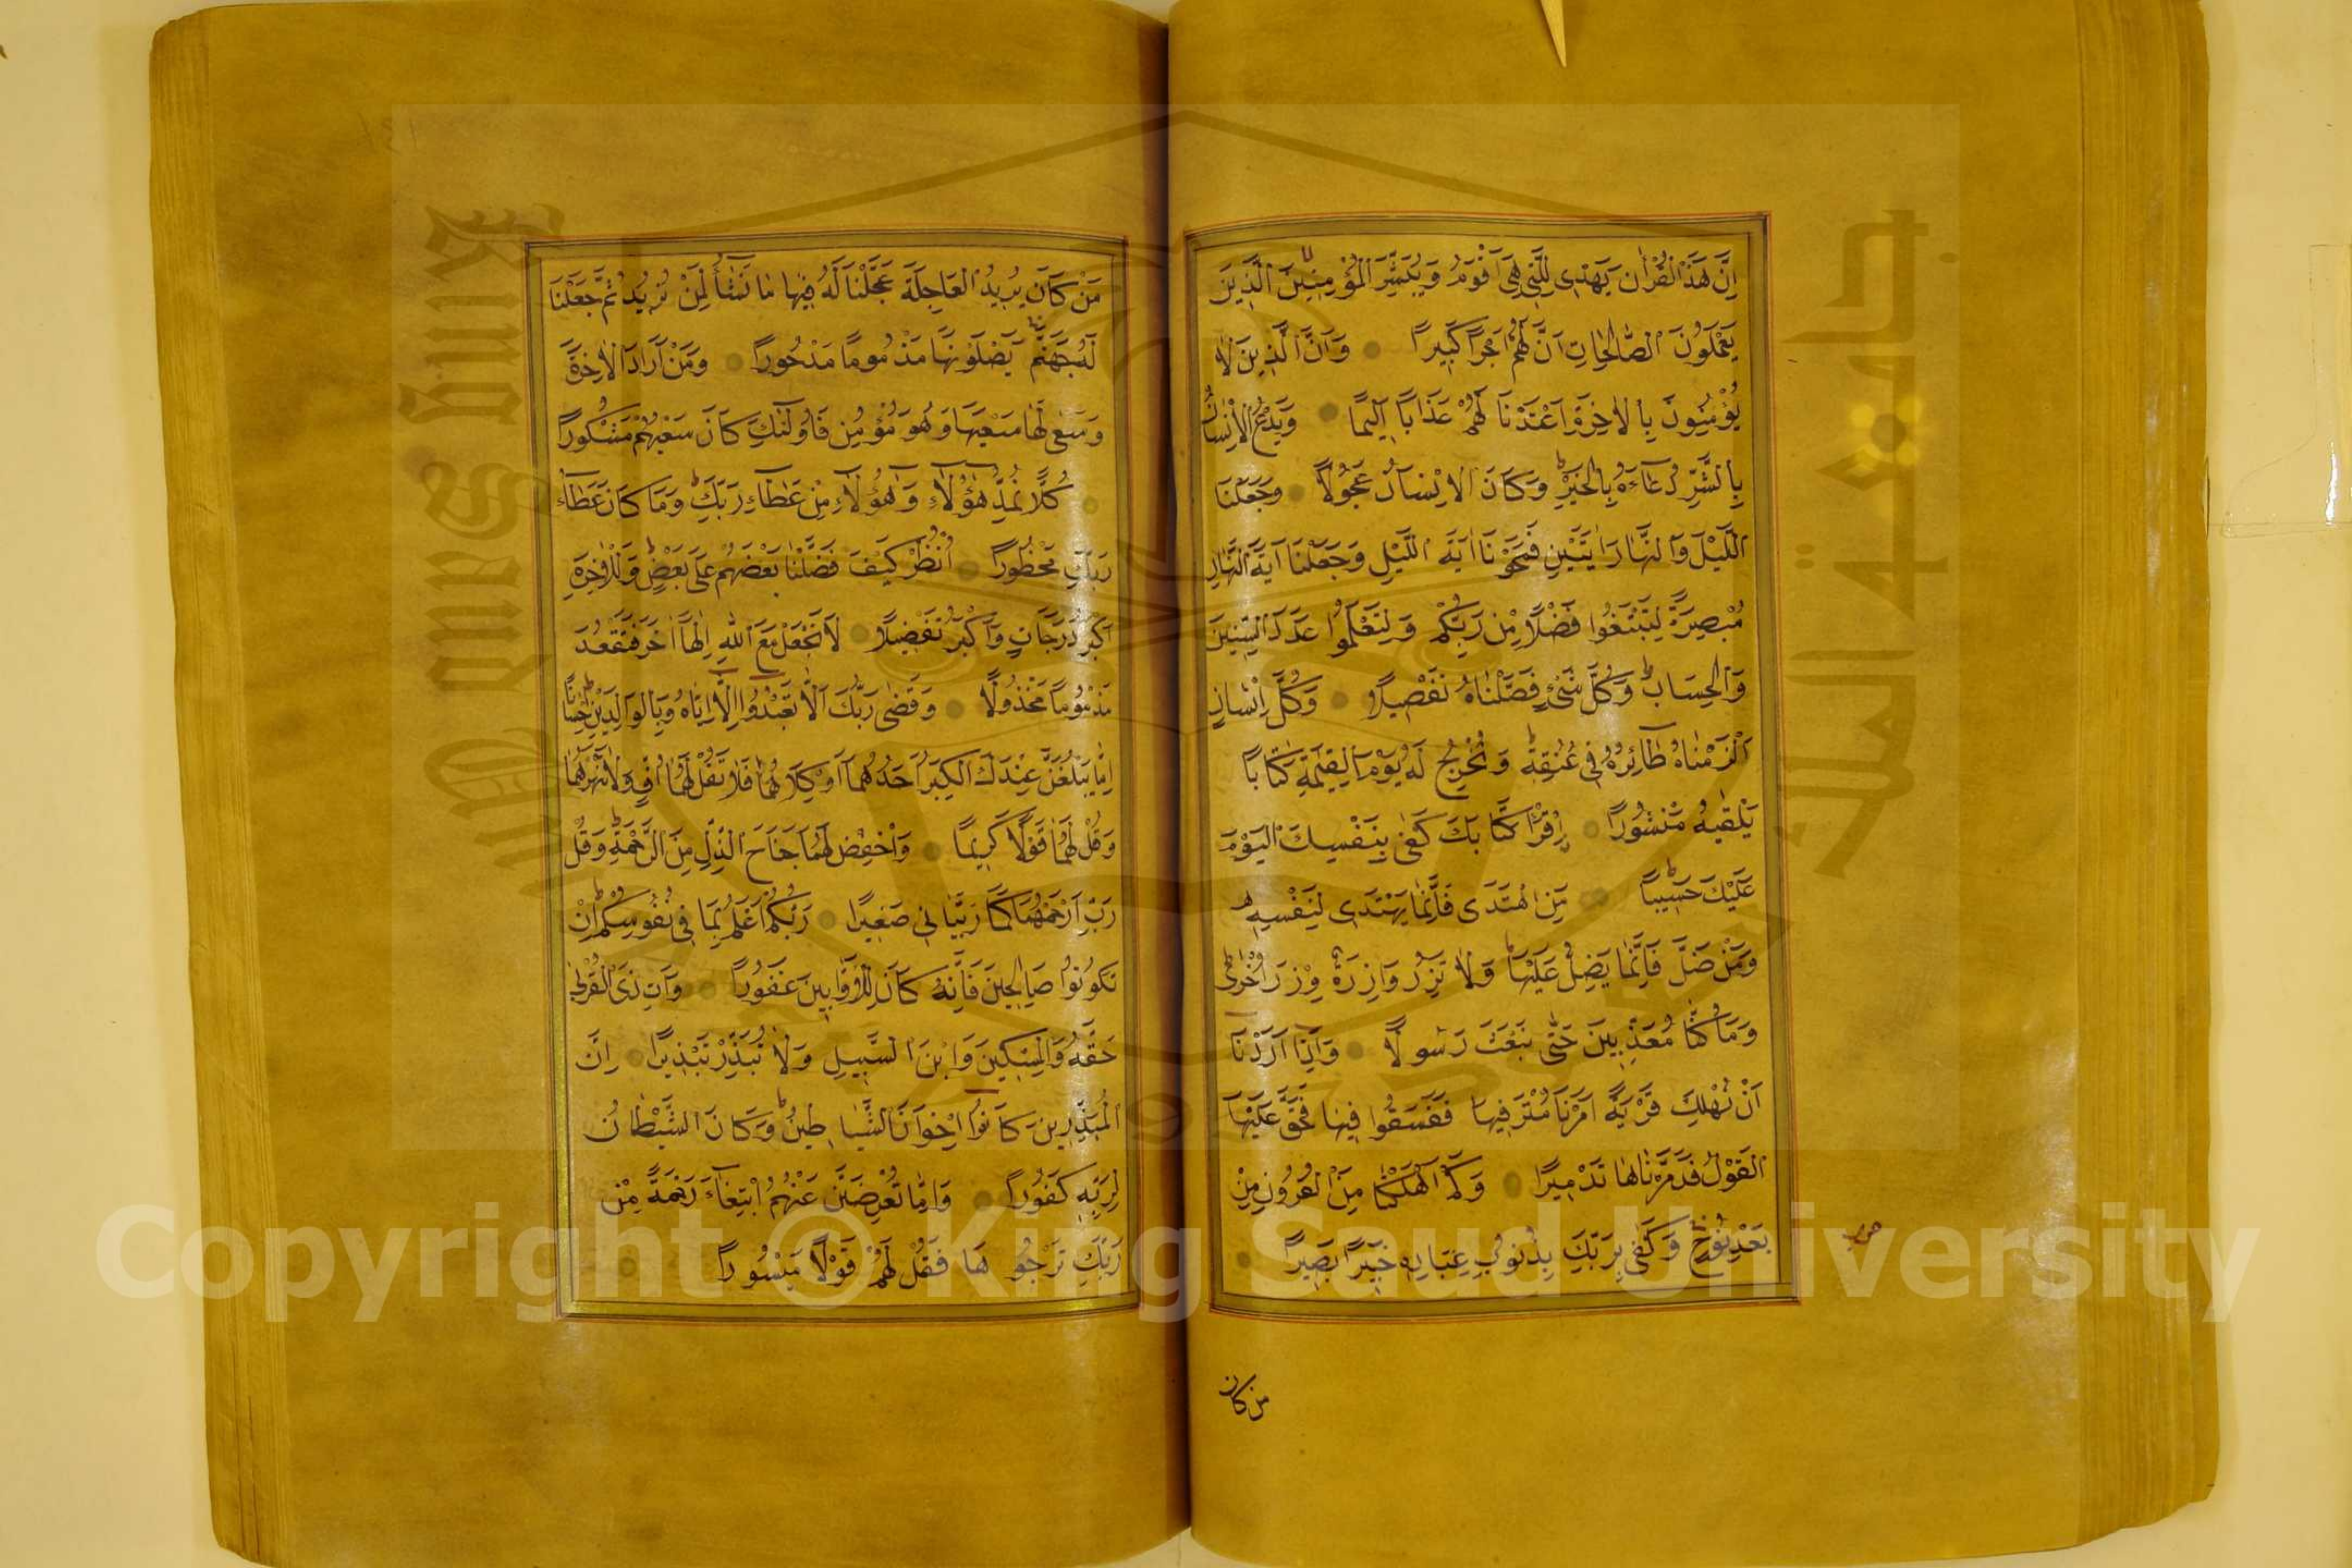 اِنَّ هٰذَا الْقُرْاٰنَ يَهْدِى لِلَّتِى هِىَ اَقْوَمُ وَيُبَشِّرُ الْمُؤْمِنِينَ الَّذِينَ
يَعْمَلُونَ الصَّالِحَاتِ اَنَّ لَهُمْ اَجْرًا كَبِيرًا وَاَنَّ الَّذِينَ لَا
يُؤْمِنُونَ بِالْاٰخِرَةِ اَعْتَدْنَا لَهُمْ عَذَابًا اَلِيمًا وَيَدْعُ الْاِنْسَانُ
بِالشَّرِّ دُعَآءَهُ بِالْخَيْرِ ط وَكَانَ الْاِنْسَانُ عَجُولًا وَجَعَلْنَا
اللَّيْلَ وَالنَّهَارَ اٰيَتَيْنِ فَمَحَوْنَا اٰيَةَ اللَّيْلِ وَجَعَلْنَا اٰيَةَ النَّهَارِ
مُبْصِرَةً لِتَبْتَغُوا فَضْلًا مِنْ رَبِّكُمْ وَلِتَعْلَمُوا عَدَدَ السِّنِينَ
وَالْحِسَابَ ط وَكُلَّ شَىْءٍ فَصَّلْنَاهُ تَفْصِيلًا وَكُلَّ اِنْسَانٍ
اَلْزَمْنَاهُ طَآئِرَهُ فِى عُنُقِهِ ط وَنُخْرِجُ لَهُ يَوْمَ الْقِيٰمَةِ كِتَابًا
يَلْقٰيهُ مَنْشُورًا اِقْرَأْ كِتَابَكَ كَفٰى بِنَفْسِكَ الْيَوْمَ
عَلَيْكَ حَسِيبًا ط مَنِ اهْتَدَى فَاِنَّمَا يَهْتَدِى لِنَفْسِهِ
وَمَنْ ضَلَّ فَاِنَّمَا يَضِلُّ عَلَيْهَا ط وَلَا تَزِرُ وَازِرَةٌ وِزْرَ اُخْرٰى ط
وَمَا كُنَّا مُعَذِّبِينَ حَتّٰى نَبْعَثَ رَسُولًا وَاِذَا اَرَدْنَا
اَنْ نُهْلِكَ قَرْيَةً اَمَرْنَا مُتْرَفِيهَا فَفَسَقُوا فِيهَا فَحَقَّ عَلَيْهَا
الْقَوْلُ فَدَمَّرْنَاهَا تَدْمِيرًا وَكَمْ اَهْلَكْنَا مِنَ الْقُرُونِ مِنْ
بَعْدِ نُوحٍ ط وَكَفٰى بِرَبِّكَ بِذُنُوبِ عِبَادِهِ خَبِيرًا بَصِيرًا
من كان
مَنْ كَانَ يُرِيدُ الْعَاجِلَةَ عَجَّلْنَا لَهُ فِيهَا مَا نَشَآءُ لِمَنْ نُرِيدُ ثُمَّ جَعَلْنَا
لَهُ جَهَنَّمَ يَصْلَىٰهَا مَذْمُومًا مَدْحُورًا وَمَنْ اَرَادَ الْاٰخِرَةَ
وَسَعٰى لَهَا سَعْيَهَا وَهُوَ مُؤْمِنٌ فَاُولٰٓئِكَ كَانَ سَعْيُهُمْ مَشْكُورًا
كُلًّا نُمِدُّ هٰٓؤُلَآءِ وَهٰٓؤُلَآءِ مِنْ عَطَآءِ رَبِّكَ ط وَمَا كَانَ عَطَآءُ
رَبِّكَ مَحْظُورًا اُنْظُرْ كَيْفَ فَضَّلْنَا بَعْضَهُمْ عَلٰى بَعْضٍ ط وَلَلْاٰخِرَةُ
اَكْبَرُ دَرَجَاتٍ وَاَكْبَرُ تَفْضِيلًا لَا تَجْعَلْ مَعَ اللهِ اِلٰهًا اٰخَرَ فَتَقْعُدَ
مَذْمُومًا مَخْذُولًا وَقَضٰى رَبُّكَ اَلَّا تَعْبُدُوا اِلَّا اِيَّاهُ وَبِالْوَالِدَيْنِ اِحْسَانًا ط
اِمَّا يَبْلُغَنَّ عِنْدَكَ الْكِبَرَ اَحَدُهُمَا اَوْ كِلَاهُمَا فَلَا تَقُلْ لَهُمَا اُفٍّ وَلَا تَنْهَرْهُمَا
وَقُلْ لَهُمَا قَوْلًا كَرِيمًا وَاخْفِضْ لَهُمَا جَنَاحَ الذُّلِّ مِنَ الرَّحْمَةِ ط وَقُلْ
رَبِّ ارْحَمْهُمَا كَمَا رَبَّيَانِى صَغِيرًا رَبُّكُمْ اَعْلَمُ بِمَا فِى نُفُوسِكُمْ ط اِنْ
تَكُونُوا صَالِحِينَ فَاِنَّهُ كَانَ لِلْاَوَّابِينَ غَفُورًا وَاٰتِ ذَى الْقُرْبٰى
حَقَّهُ وَالْمِسْكِينَ وَابْنَ السَّبِيلِ وَلَا تُبَذِّرْ تَبْذِيرًا اِنَّ
الْمُبَذِّرِينَ كَانُوا اِخْوَانَ الشَّيَاطِينِ ط وَكَانَ الشَّيْطَانُ
لِرَبِّهِ كَفُورًا وَاِمَّا تُعْرِضَنَّ عَنْهُمُ ابْتِغَآءَ رَحْمَةٍ مِنْ
رَبِّكَ تَرْجُوهَا فَقُلْ لَهُمْ قَوْلًا مَيْسُورًا
King Saud University
جامعة الملك سعود
Copyright © King Saud University